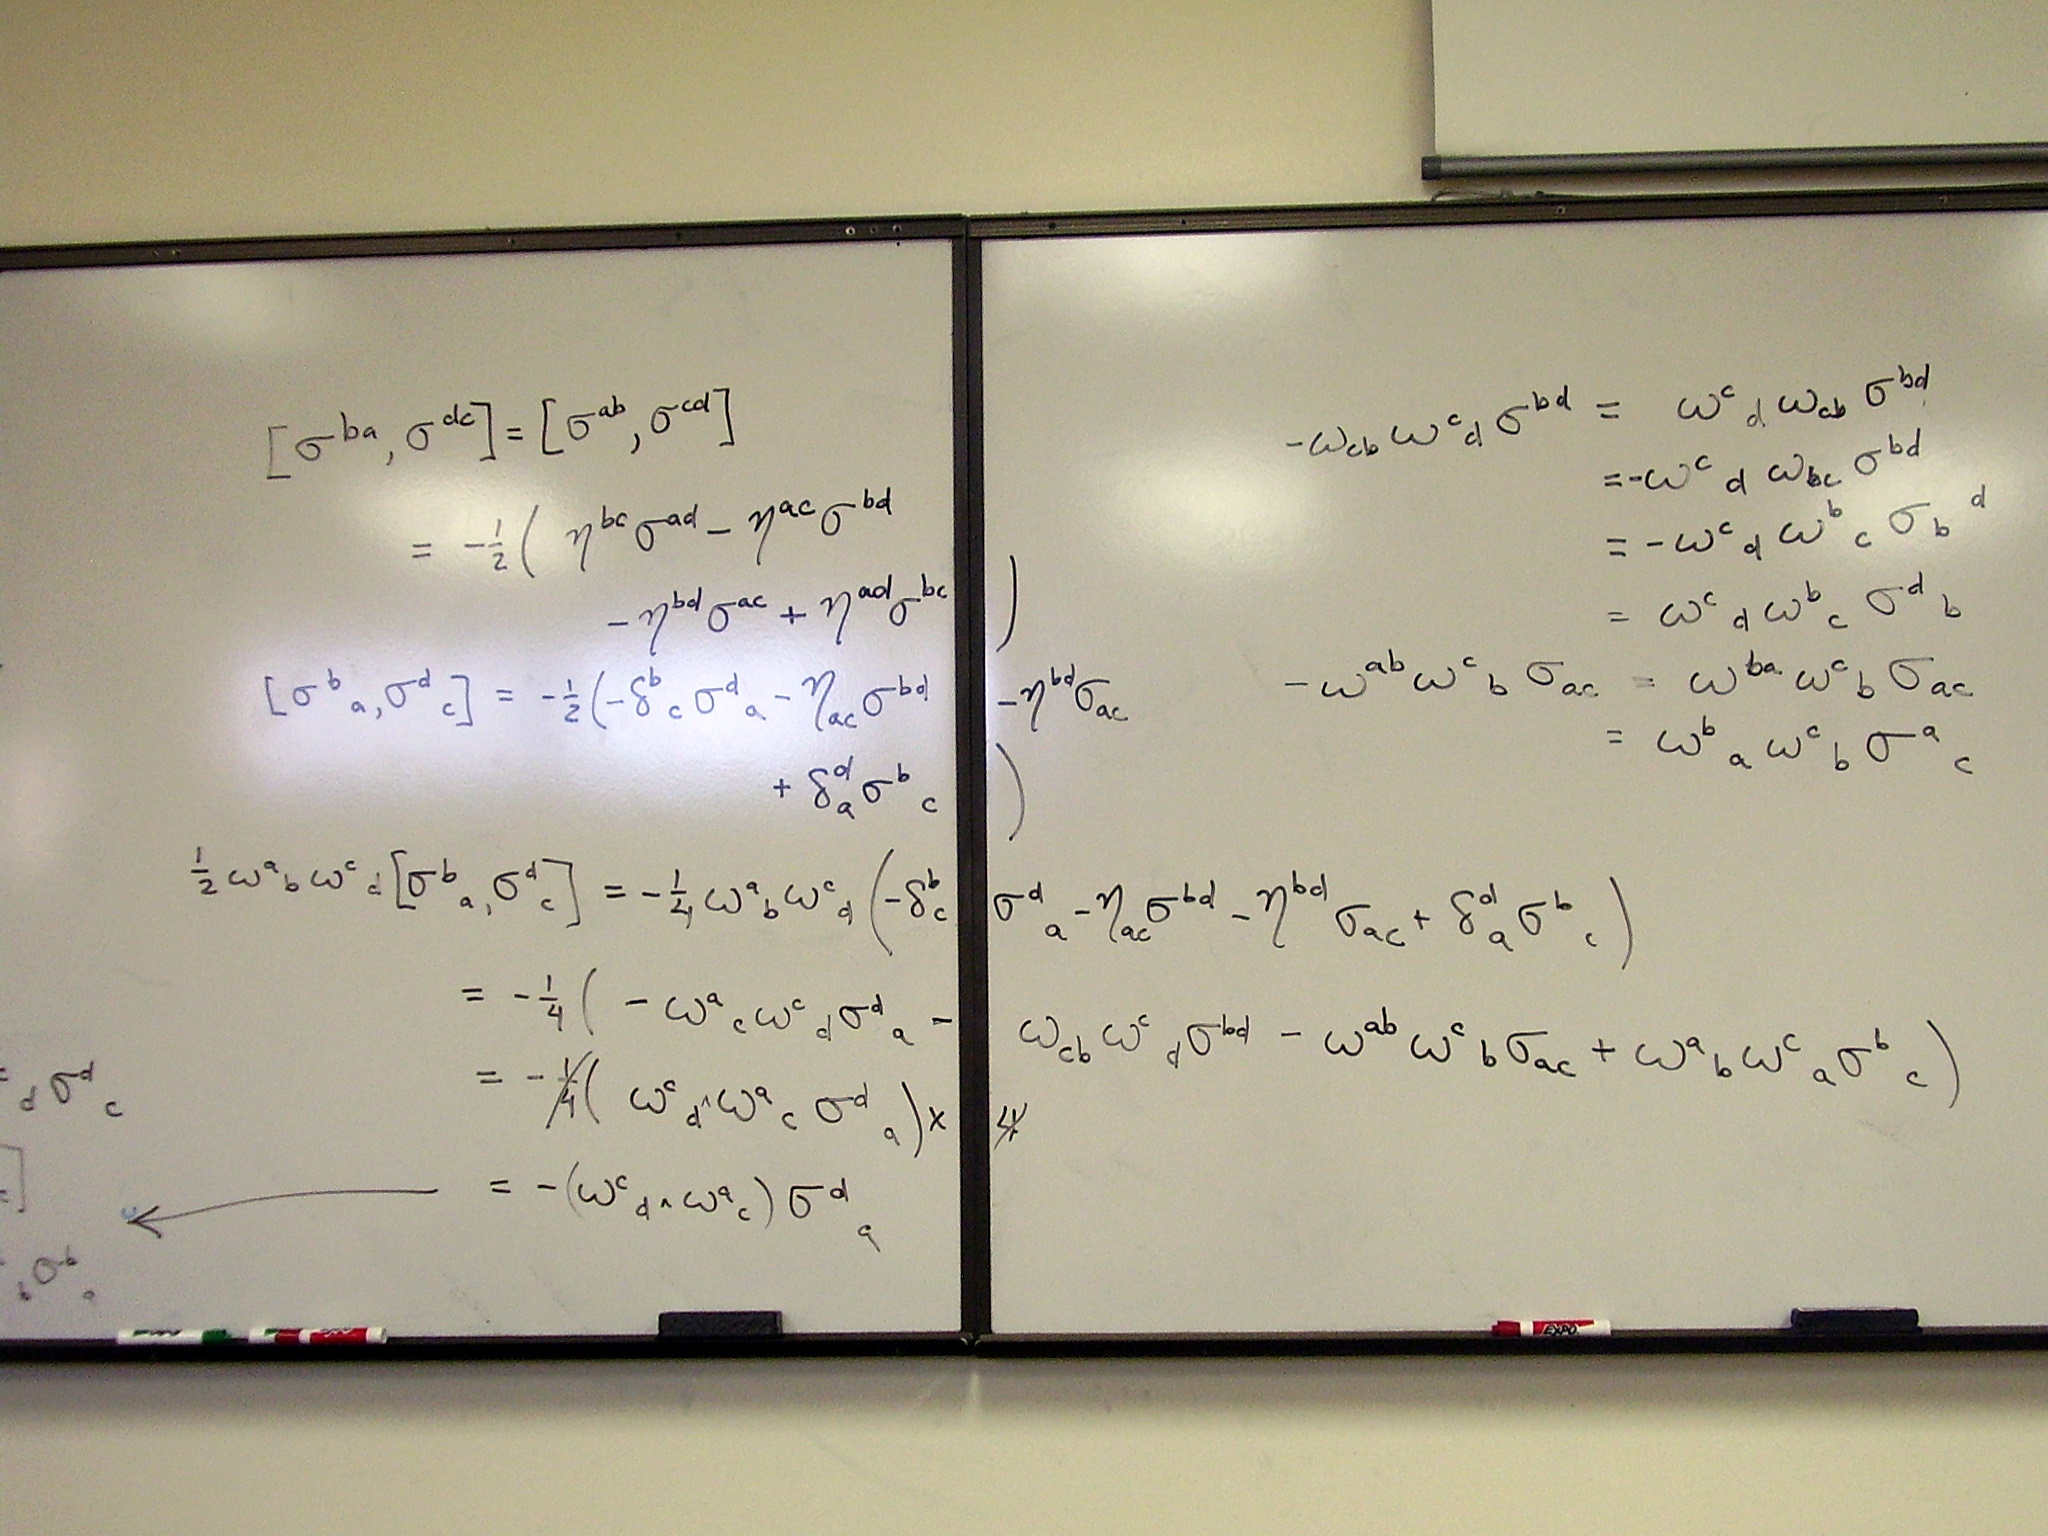 [σ^{ba}, σ^{dc}] = [σ^{ab}, σ^{cd}]
= -\frac{1}{2}( η^{bc}σ^{ad} - η^{ac}σ^{bd}
- η^{bd}σ^{ac} + η^{ad}σ^{bc} )
[σ^b_a, σ^d_c] = -\frac{1}{2}(-δ^b_c σ^d_a - η_{ac}σ^{bd} - η^{bd}σ_{ac}
+ δ^d_a σ^b_c )
\frac{1}{2} ω^a_b ω^c_d [σ^b_a, σ^d_c] = -\frac{1}{4} ω^a_b ω^c_d (-δ^b_c σ^d_a - η_{ac}σ^{bd} - η^{bd}σ_{ac} + δ^d_a σ^b_c)
= -\frac{1}{4}( - ω^a_c ω^c_d σ^d_a - ω_{cb} ω^c_d σ^{bd} - ω^{ab} ω^c_b σ_{ac} + ω^a_b ω^c_a σ^b_c )
= -\frac{1}{4}( ω^c_d ∧ ω^a_c σ^d_a ) × 4
= -(ω^c_d ∧ ω^a_c) σ^d_a
-ω_{cb} ω^c_d σ^{bd} = ω^c_d ω_{cb} σ^{bd}
= -ω^c_d ω_{bc} σ^{bd}
= -ω^c_d ω^b_c σ_b^d
= ω^c_d ω^b_c σ^d_b
-ω^{ab} ω^c_b σ_{ac} = ω^{ba} ω^c_b σ_{ac}
= ω^b_a ω^c_b σ^a_c
_d σ^d_c
]
_b σ^b_a
EXPO